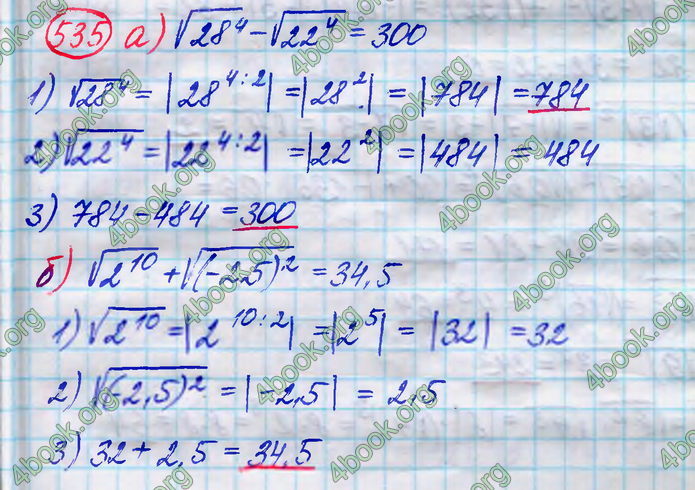 535 а) √28⁴ - √22⁴ = 300
1) √28⁴ = |28⁴:²| = |28²| = |784| = 784
2) √22⁴ = |22⁴:²| = |22²| = |484| = 484
3) 784 - 484 = 300
б) √2¹⁰ + √(-2,5)² = 34,5
1) √2¹⁰ = |2¹⁰:²| = |2⁵| = |32| = 32
2) √(-2,5)² = |-2,5| = 2,5
3) 32 + 2,5 = 34,5
4book.org